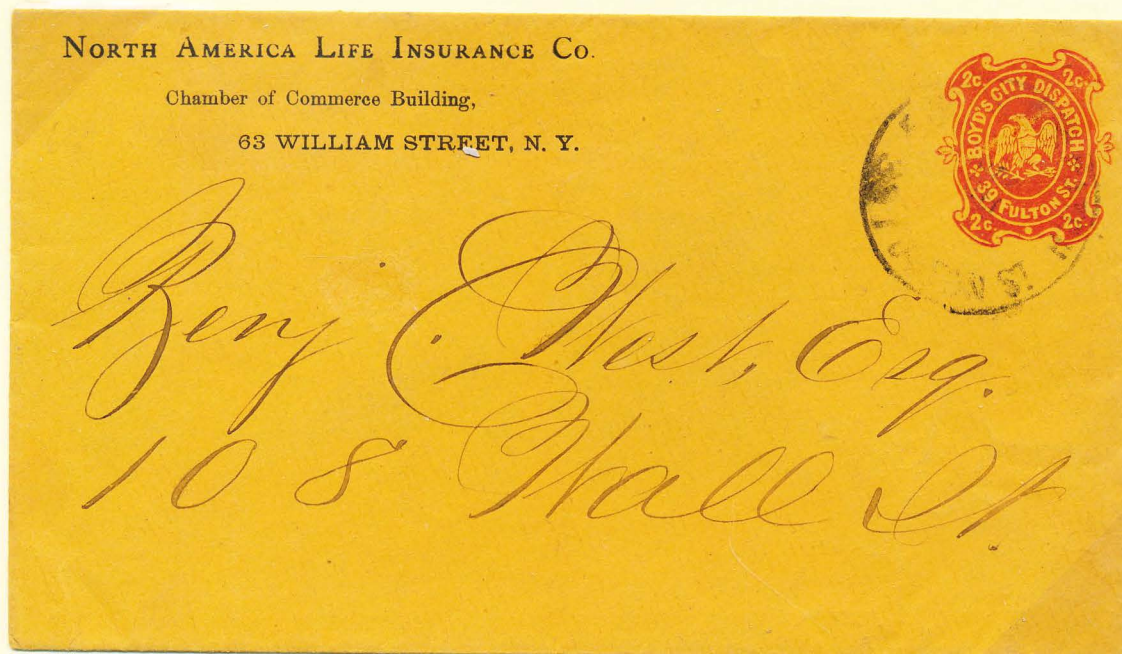 NORTH AMERICA LIFE INSURANCE CO.
Chamber of Commerce Building,
63 WILLIAM STREET, N. Y.
2c. 2c.
BOYD'S CITY DISPATCH
39 FULTON ST.
2c. 2c.
ST.
Benj. C. West, Esq.
108 Wall St.